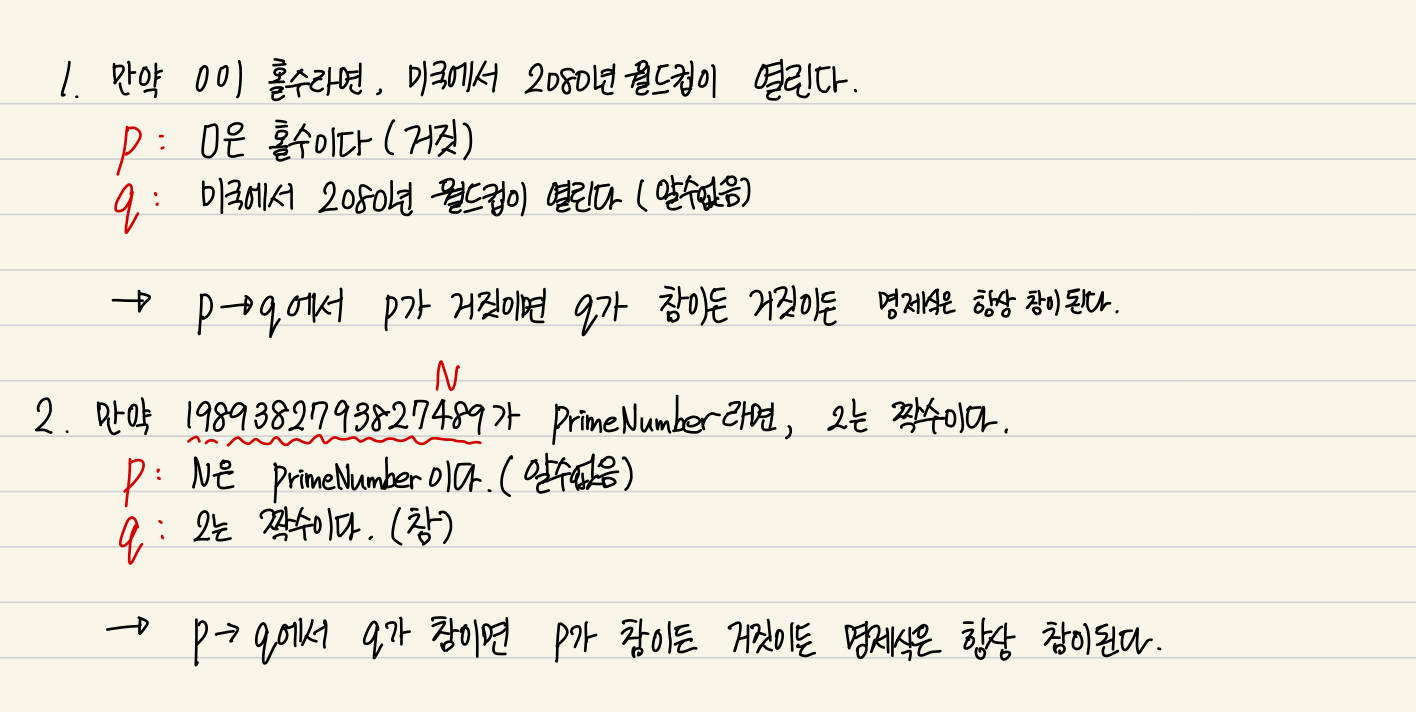 1. 만약 0이 홀수라면, 미국에서 2080년 월드컵이 열린다.
p: 0은 홀수이다 (거짓)
q: 미국에서 2080년 월드컵이 열린다 (알수없음)
→ p→q에서 p가 거짓이면 q가 참이든 거짓이든 명제식은 항상 참이 된다.
N
2. 만약 1989382793827489가 PrimeNumber라면, 2는 짝수이다.
p: N은 PrimeNumber이다. (알수없음)
q: 2는 짝수이다. (참)
→ p→q에서 q가 참이면 p가 참이든 거짓이든 명제식은 항상 참이된다.